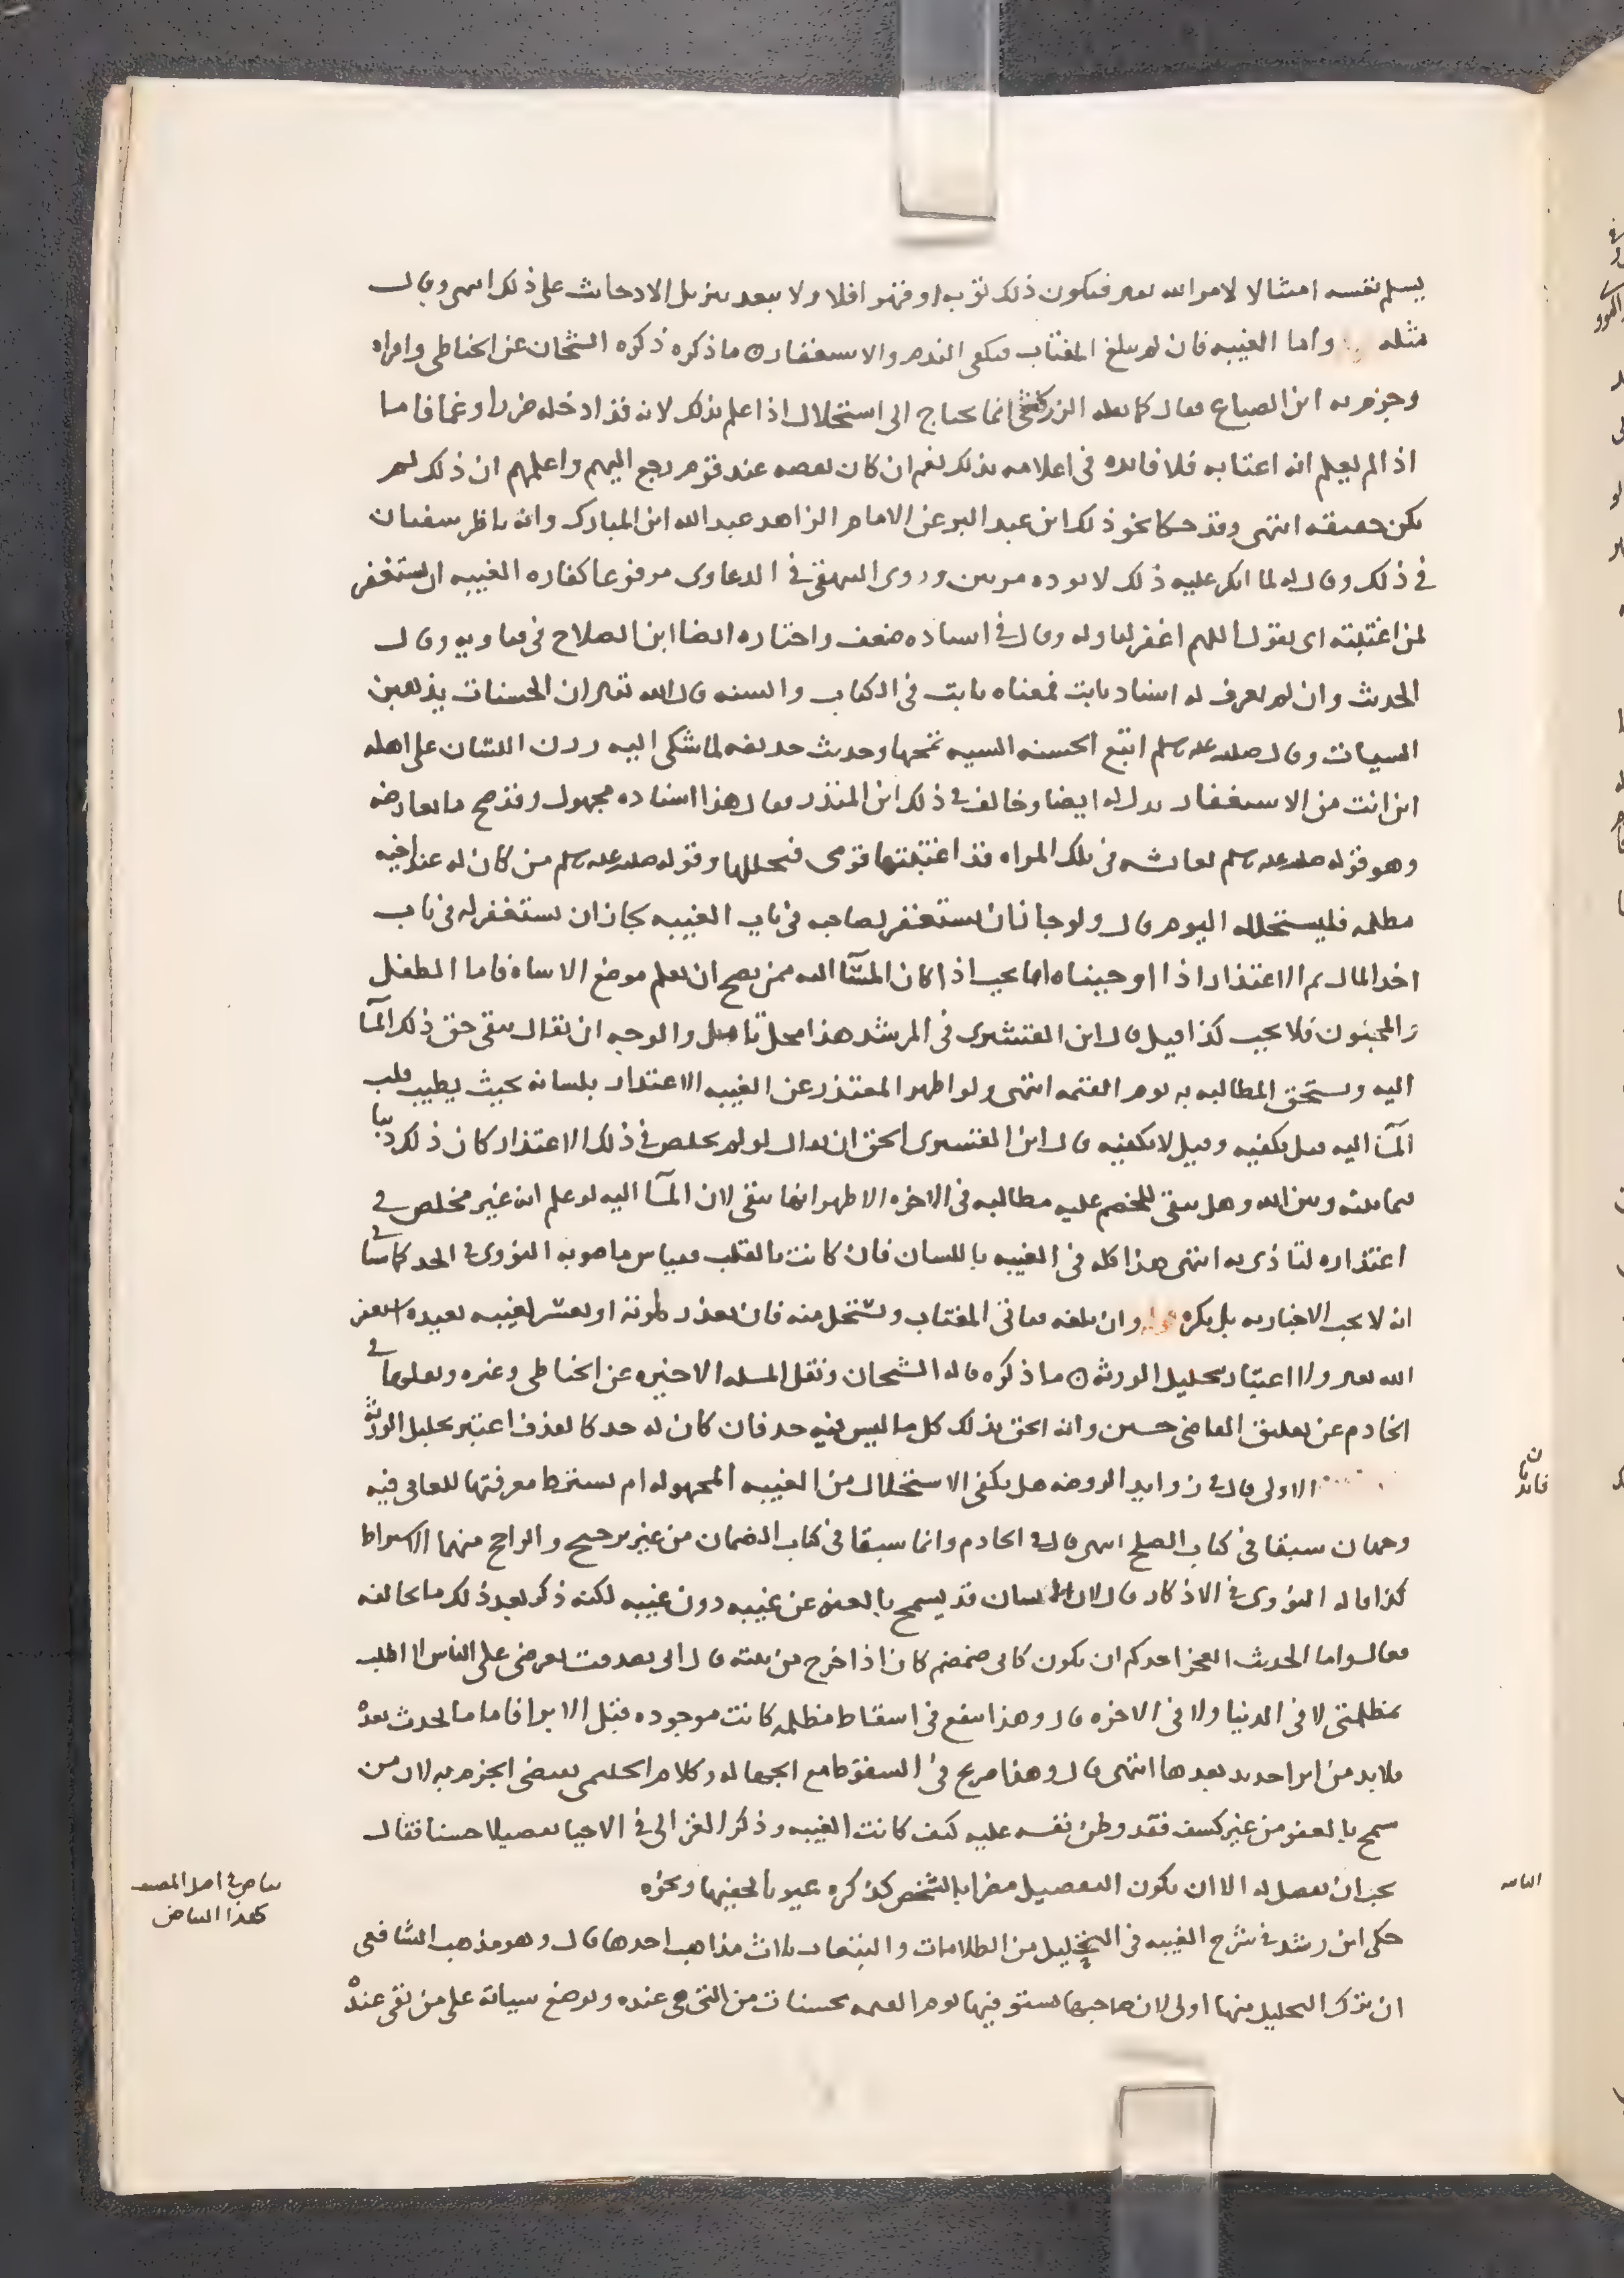 يسلم نفسه امتثالا لامر الله تعالى فيكون ذلك توبه او فهو افلا ولا يبعد تنزيل الاحاديث على ذلك انتهى وقال
مثله واما الغيبه فان لم تبلغ المغتاب فيكفى الندم والاستغفار ما ذكره ذكره الشيخان عن الحناطى واقراه
وجزم به ابن الصباغ فقال كما نقله الزركشى انما يحتاج الى استحلال اذا علم بذلك لانه قد ادخله ضررا وغما فاما
اذا لم يعلم انه اغتابه فلا فائده فى اعلامه بذلك نعم ان كان نقصه عند قوم رجع اليهم واعلمهم ان ذلك لم
يكن حقيقه انتهى وقد حكا نحو ذلك ابن عبد البر عن الامام الزاهد عبد الله ابن المبارك وانه ناظر سفيان
فى ذلك وقال له لما انكر عليه ذلك لا توده مرتين وروى البيهقى فى الدعاوى مرفوعا كفاره الغيبه ان تستغفر
لمن اغتبته اى يقول اللهم اغفر لنا وله وقال فى اسناده ضعف واختاره ايضا ابن الصلاح فى فتاويه وقال
الحديث وان لم يعرف له اسناد ثابت فمعناه ثابت فى الكتاب والسنه قال الله تعالى ان الحسنات يذهبن
السيات وقال صلى الله عليه وسلم اتبع الحسنه السيه تمحها وحديث حذيفه لما شكى اليه ذرب اللسان على اهله
اين انت من الاستغفار يدل له ايضا وخالف فى ذلك ابن المنذر فقال هذا اسناده مجهول وقد صح ما يعارضه
وهو قوله صلى الله عليه وسلم لعائشه فى تلك المراه قد اغتبتها قومى فتحلليها وقوله صلى الله عليه وسلم من كان له عند اخيه
مظلمه فليستحلله اليوم قال ولو جاز ان يستغفر لصاحبه فى باب الغيبه لجاز ان يستغفر له فى باب
اخذ المال ثم الاعتذار اذا اوجبناه انما يجب اذا كان المسا اليه ممن يصح ان يعلم موضع الاساه فاما الطفل
والمجنون فلا يجب كذا قيل قال ابن القشيرى فى المرشد هذا محل تامل والوجه ان يقال يبقى حق ذلك المسا
اليه ويستحق المطالبه به يوم القيمه انتهى ولو اظهر المعتذر عن الغيبه الاعتذار بلسانه بحيث يطيب قلب
المسا اليه قيل يكفيه وقيل لا يكفيه قال ابن القشيرى الحق ان يقال لو لم يخلص فى ذلك الاعتذار كان ذلك ذنبا
فيما بينه وبين الله وهل يبقى للخصم عليه مطالبه فى الاخره الاظهر انها تبقى لان المسا اليه لو علم انه غير مخلص فى
اعتذاره لتاذى به انتهى هذا كله فى الغيبه باللسان فان كانت بالقلب فقياس ما صوبه النووى فى الحسد كما سياتى
انه لا يجب الاخبار به بل يكره وان بلغه فياتى المغتاب ويستحل منه فان تعذر لموته او تعسر لغيبه بعيده استغفر
الله تعالى ولا اعتبار بتحليل الورثه ما ذكره قاله الشيخان ونقل المسله الاخيره عن الحناطى وغيره ونقلهما فى
الخادم عن تعليق القاضى حسين وانه الحق بذلك كل ما ليس فيه حد فان كان له حد كالقذف اعتبر تحليل الورثه
الاولى قال فى زوايد الروضه هل يكفى الاستحلال من الغيبه المجهوله ام يشترط معرفتها للعافى فيه
وجهان سبقا فى كتاب الصلح انتهى قال فى الخادم وانما سبقا فى كتاب الضمان من غير ترجيح والراجح منهما الاشتراط
كذا قاله النووى فى الاذكار قال لان الانسان قد يسمح بالعفو عن غيبه دون غيبه لكنه ذكر بعد ذلك ما يخالفه
فقال واما الحديث ايعجز احدكم ان يكون كابى ضمضم كان اذا خرج من بيته قال انى تصدقت بعرضى على الناس لا اطلب
بمظلمتى لا فى الدنيا ولا فى الاخره قال وهذا ينفع فى اسقاط مظلمه كانت موجوده قبل الابرا فاما ما يحدث بعده
فلا بد من ابرا جديد بعدها انتهى قال وهذا صريح فى السقوط مع الجهاله وكلام الحليمى يقتضى الجزم به لان من
سمح بالعفو من غير كشف فقد وطن نفسه عليه كيف كانت الغيبه وذكر الغزالى فى الاحيا تفصيلا حسنا فقال
يجب ان يفصل له الا ان يكون التفصيل مضرا بالشخص كذكره عيوبا يخفيها ونحوه
حكى ابن رشد فى شرح الغيبه فى التحليل من الظلامات والتبعات ثلاث مذاهب احدها قال وهو مذهب الشافعى
ان ترك التحليل منها اولى لان صاحبها يستوفيها يوم القيمه بحسنات من التى هى عنده وتوضع سياته على من بقى عنده
فائدتان
الثانيه
بياض فى اصل المصنف
كهذا البياض